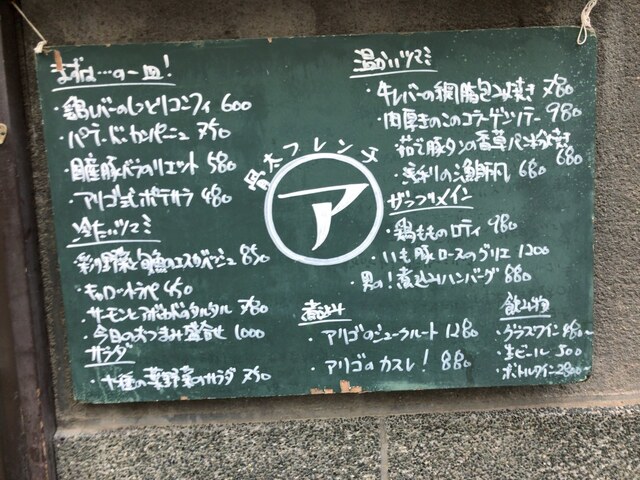 まずは…の一皿!
・鶏レバーのしっとりコンフィ 600
・パテ・ド・カンパーニュ 750
・豚バラのリエット 580
・アリゴ式ポテサラ 480
冷たいツマミ
彩り野菜と のエスカベッシュ 850
・キャロットラペ 450
・サーモンとアボカドのタルタル 780
・今日のおつまみ盛合せ 1000
サラダ
・十種の葉野菜のサラダ 750
骨太フレンチ
ア
温かいツマミ
・牛レバーの網脂包み焼き 780
・肉厚きのこのコラーゲンソテー 980
・茹で豚タンの香草パン粉焼き 680
・浅利の 680
ザ・フメイン
・鶏もものロティ 980
・いも豚ロースのグリエ 1200
・男の!煮込みハンバーグ 880
煮込み
・アリゴのシュークルート 1280
・アリゴのカスレ! 880
飲み物
・グラスワイン 480~
・生ビール 500
・ボトルワイン 2800~